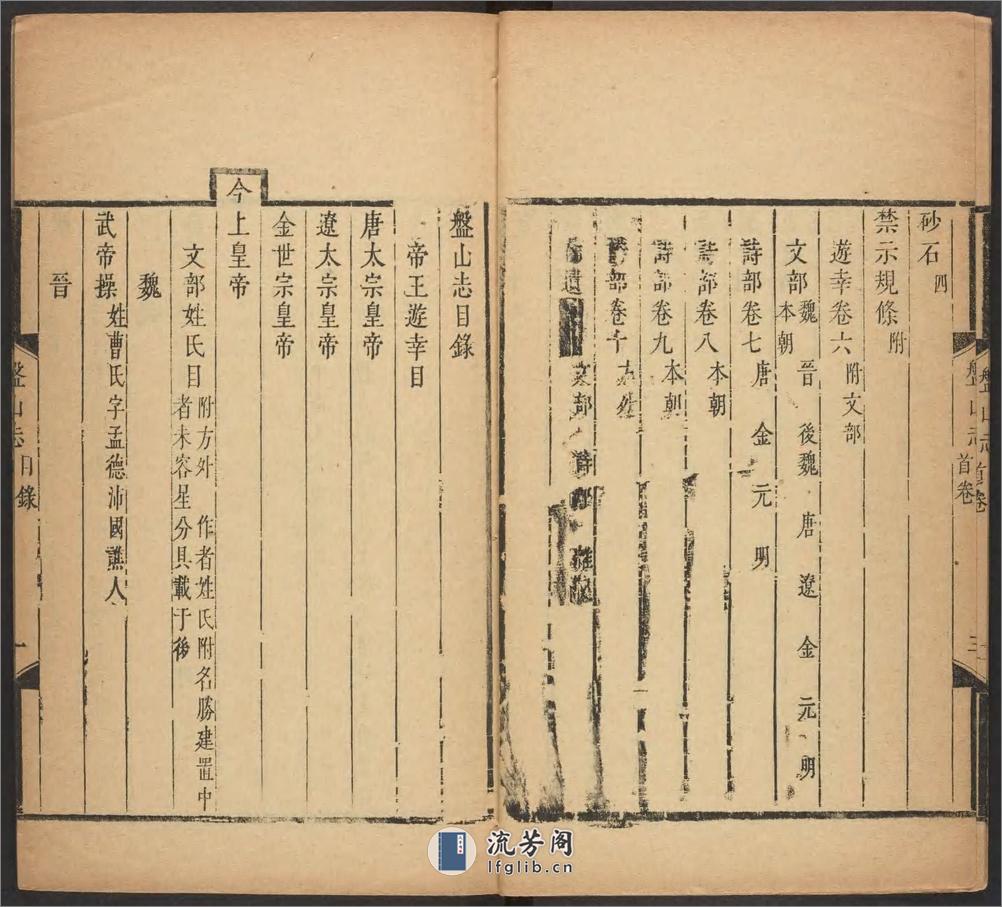 砂石四
禁示規條附
遊幸卷六 附文部
文部 魏 晉 後魏 唐 遼 金 元 明 本朝
詩部卷七 唐 金 元 明
詩部卷八 本朝
詩部卷九 本朝
部卷十
遺 文部 詩部
盤山志 首卷
盤山志目錄
帝王遊幸目
唐太宗皇帝
遼太宗皇帝
金世宗皇帝
今上皇帝
文部姓氏目 附方外 作者姓氏附名勝建置中者未容星分具載于後
魏
武帝操 姓曹氏字孟德沛國譙人
晉
盤山志 目錄 一
流芳阁
lfglib.cn